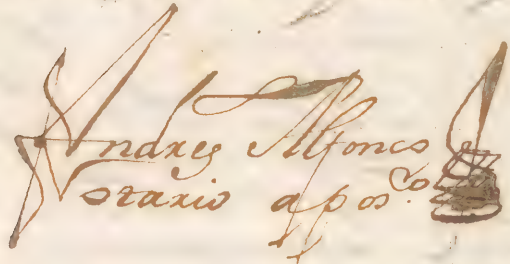 Andres Alfonso
Notario apos.co